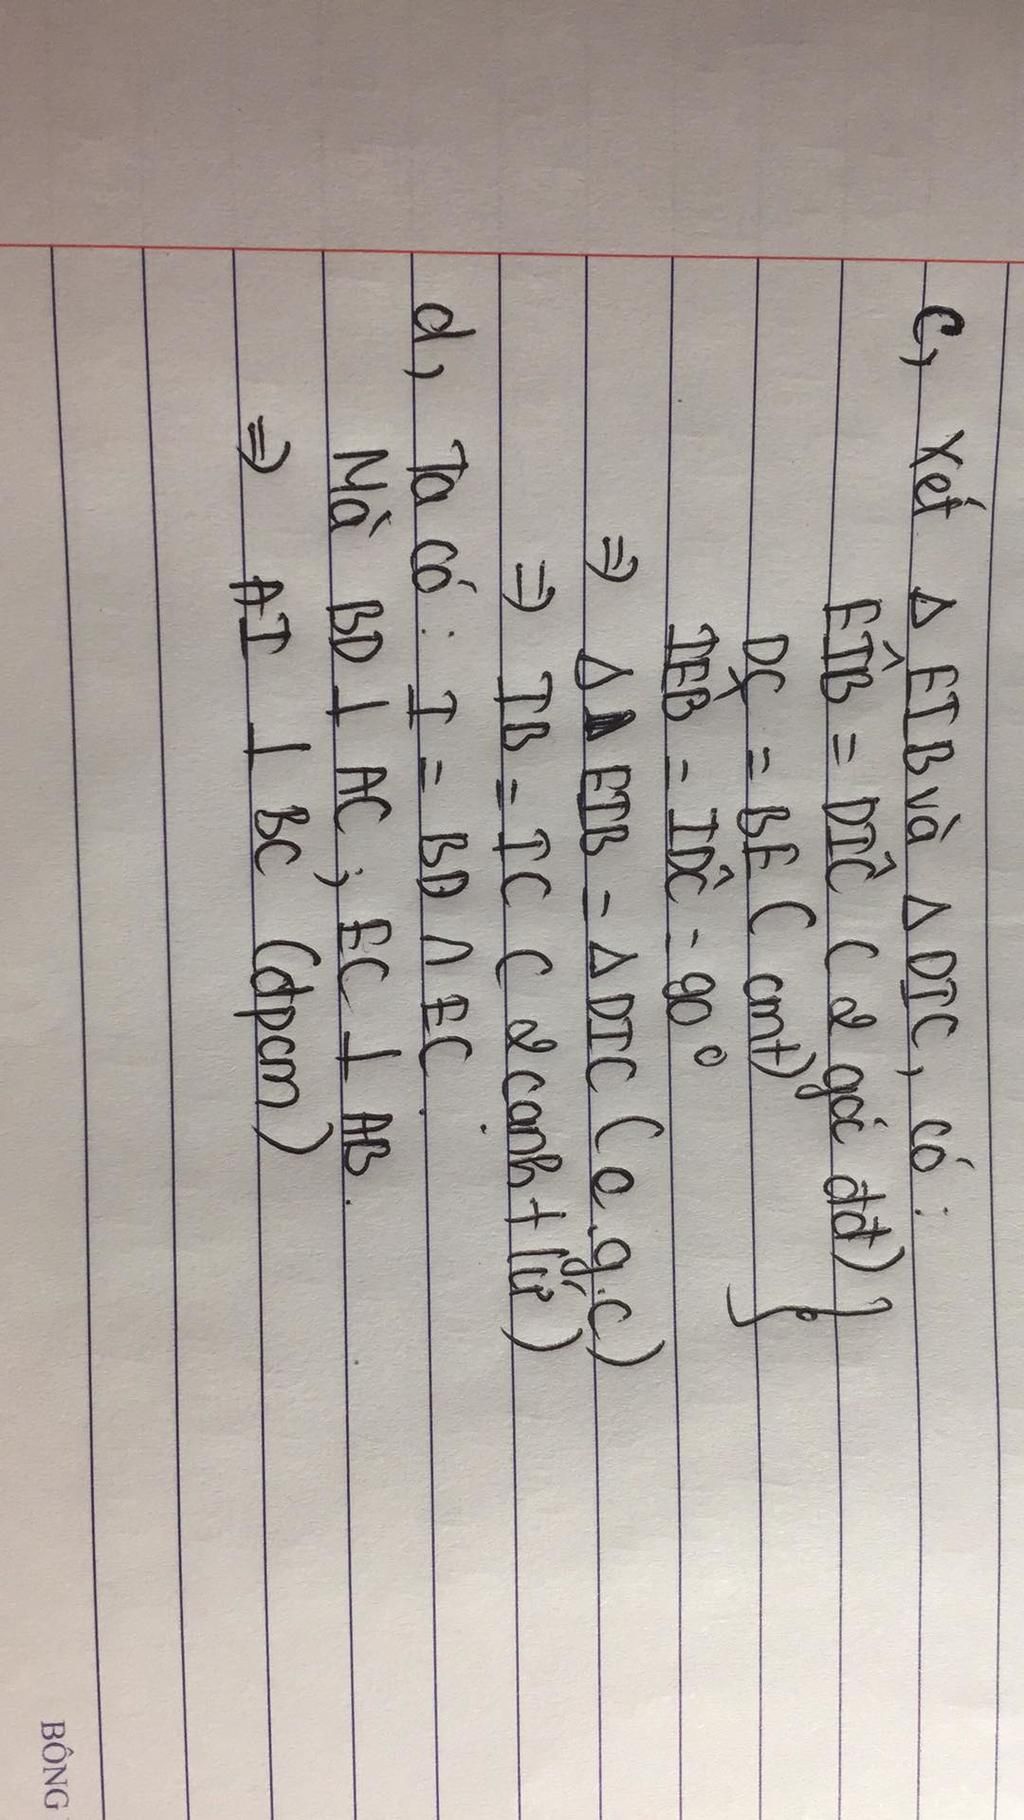 c, Xét Δ EIB và Δ DIC, có:
EÎB = DIĈ (2 góc đđ)
DC = BE (cmt)
IÊB = ID̂C = 90°
⇒ Δ EIB = Δ DIC (c.g.c)
⇒ IB = IC (2 cạnh t/ứ)
d, Ta có: I = BD ∩ EC.
Mà BD ⊥ AC; EC ⊥ AB.
⇒ AI ⊥ BC (đpcm)
BÔNG